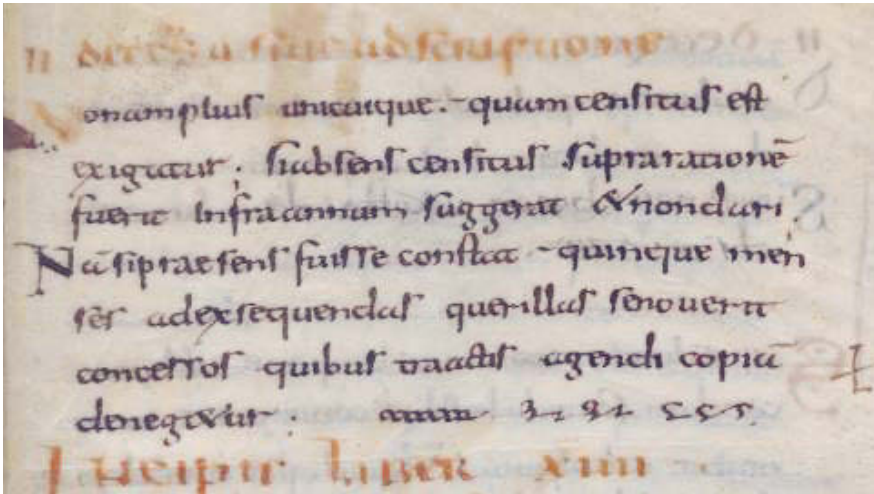 II de censu siue adscriptione
onamplius unicuique. quam censitus est
exigatur. siabsens censitus supra rationē
fuerit infra annum suggerat & non clari
Nā si praesens fuisse constat quinque men
ses ad exsequendas querillas se nouerit
concessos quibus tractis agendi copiā
deneg&ur
INCIPIT LIBER XIIII